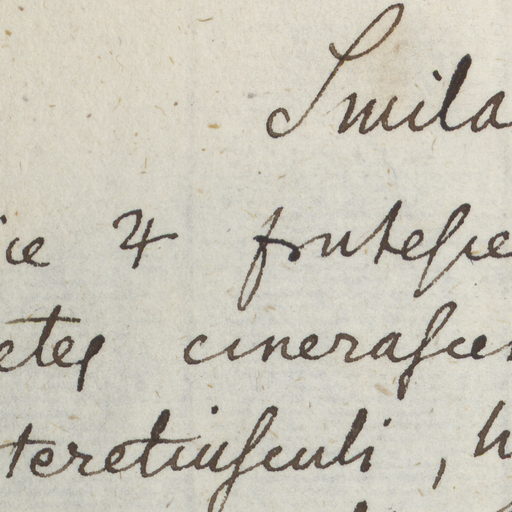 Smila
ice ♃ frutesce
etes cinerascen
teretiusculi, h